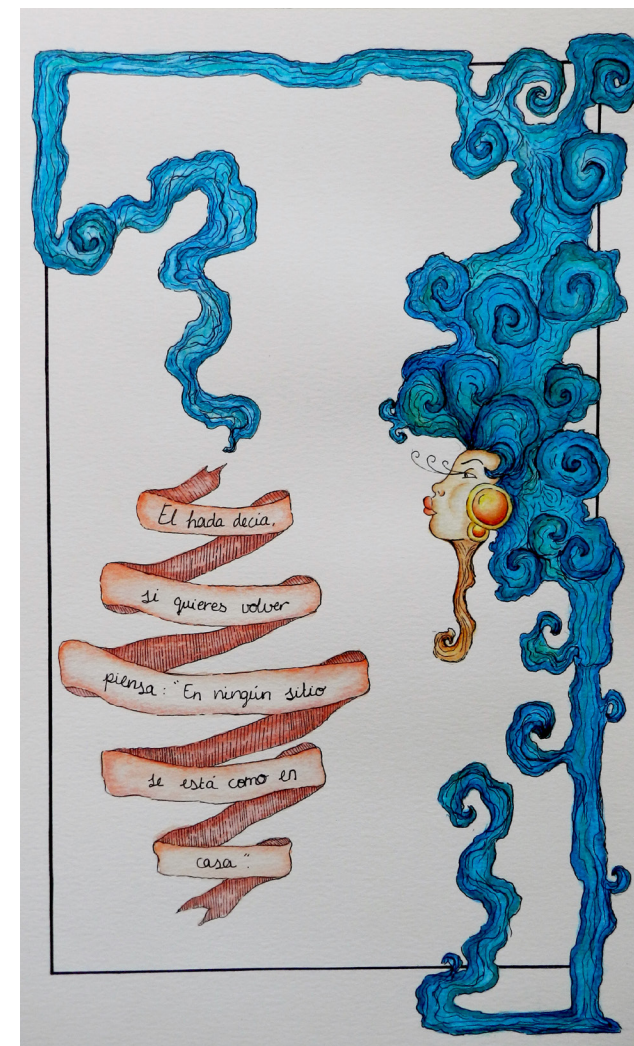 El hada decia,
si quieres volver
piensa: "En ningún sitio
se está como en
casa".